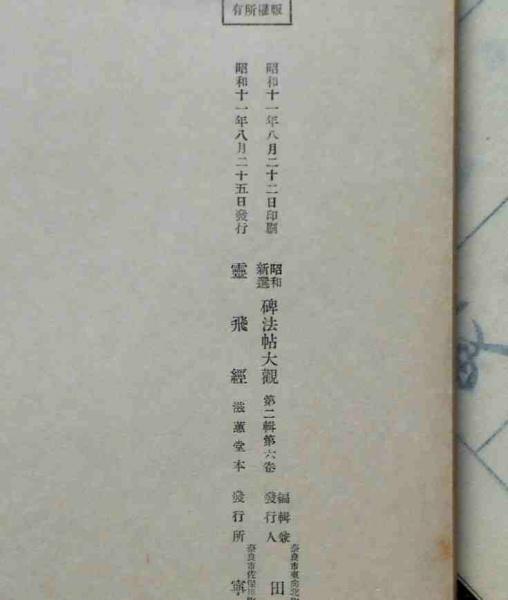 有所權版
昭和十一年八月二十二日印刷
昭和十一年八月二十五日發行
昭和新選 碑法帖大觀 第二輯第六卷
靈飛經 滋蕙堂本
編輯兼發行人
奈良市東向北
田
發行所
奈良市佐保
寧